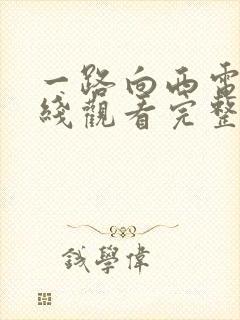 一路向西電
綫觀看完整
錢學偉